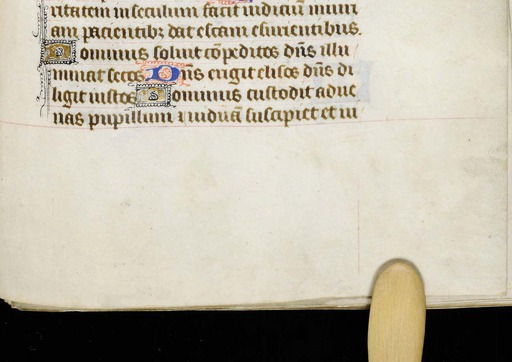 ritatem in seculum facit iudiciū iniuri
am pacientibꝫ dat escam esurientibus.
Dominus soluit cōpeditos dn̄s illu
minat cecos Dn̄s erigit elisos dn̄s di
ligit iustos Dominus custodit adue
nas pupillum ⁊ uiduā suscipiet et ui